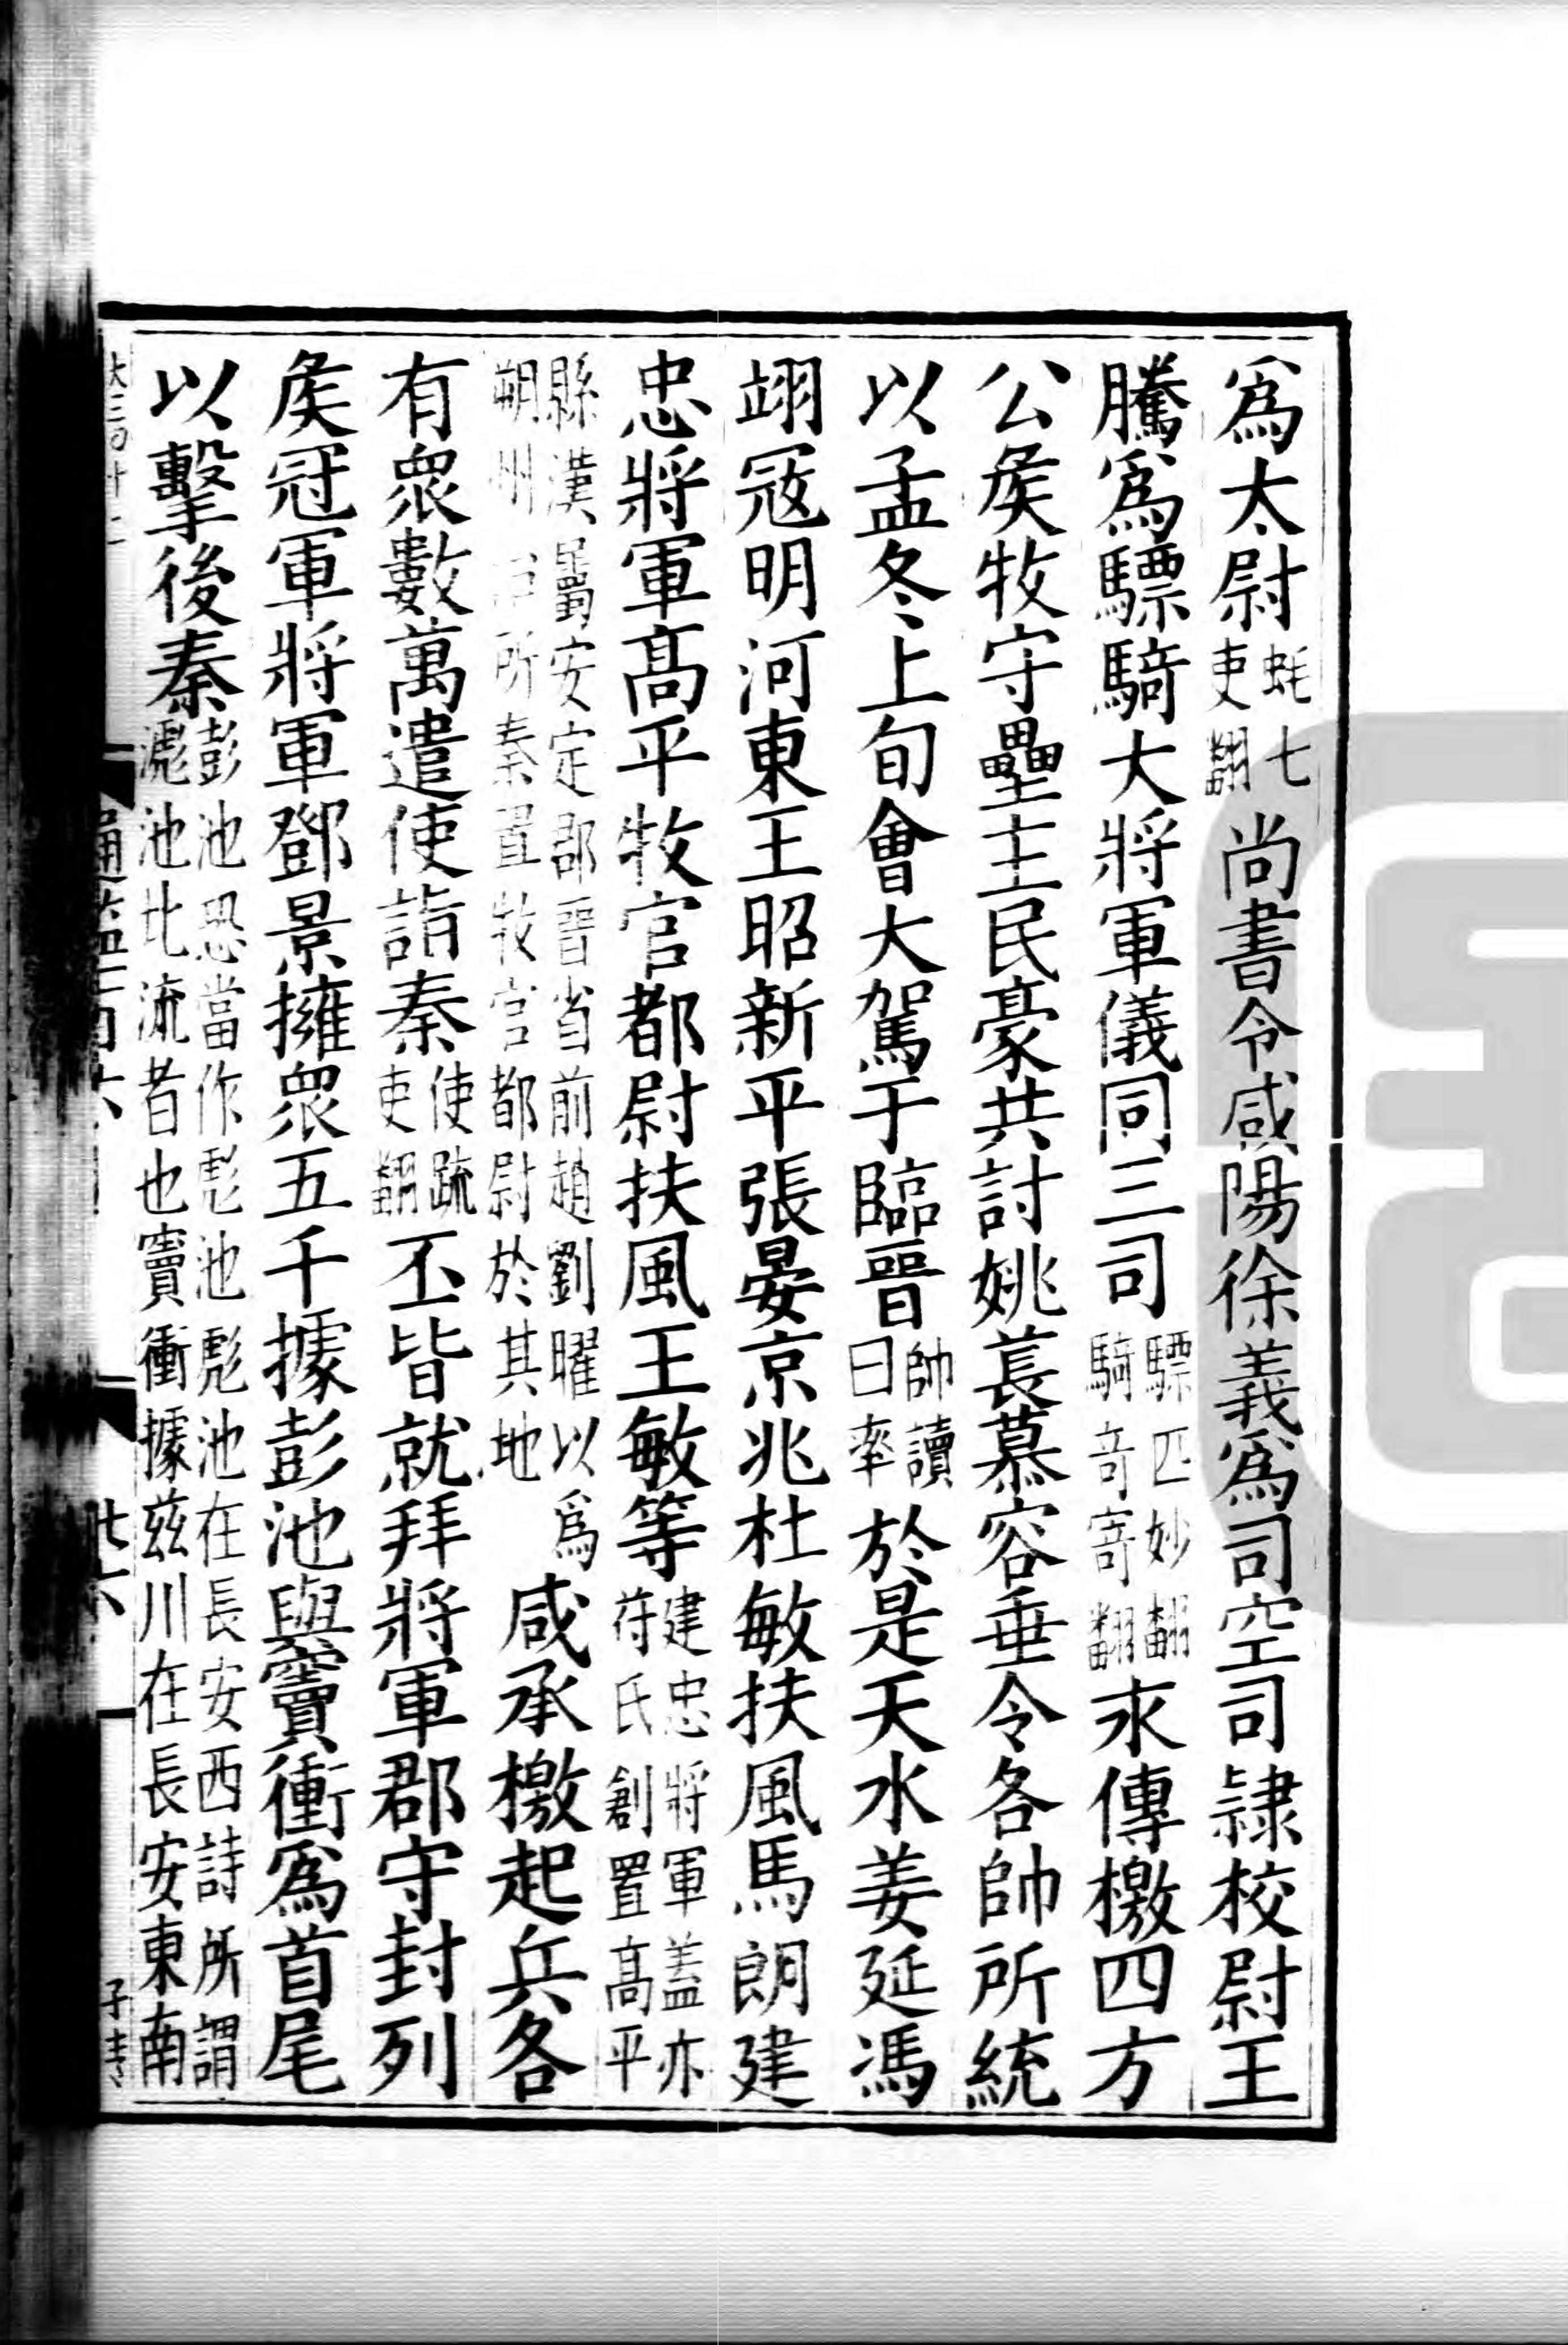 爲太尉蚝七吏翻尚書令咸陽徐義爲司空司隷校尉王
騰爲驃騎大將軍儀同三司驃匹妙翻騎竒寄翻永傳檄四方
公矦牧守壘主民豪共討姚萇慕容垂令各帥所統
以孟冬上旬會大駕于臨晉帥讀曰率於是天水姜延馮
翊寇明河東王昭新平張晏京兆杜敏扶風馬朗建
忠將軍髙平牧官都尉扶風王敏等建忠將軍蓋亦苻氏創置髙平
縣漢屬安定郡晉省前趙劉曜以爲朔州治所秦置牧官都尉於其地咸承檄起兵各
有衆數萬遣使詣秦使疏吏翻丕皆就拜將軍郡守封列
矦冠軍將軍鄧景擁衆五千據彭池與竇衝爲首尾
以擊後秦彭池恐當作彪池彪池在長安西詩所謂滮池北流者也竇衝據兹川在長安東南
通鑑一百六
廿六